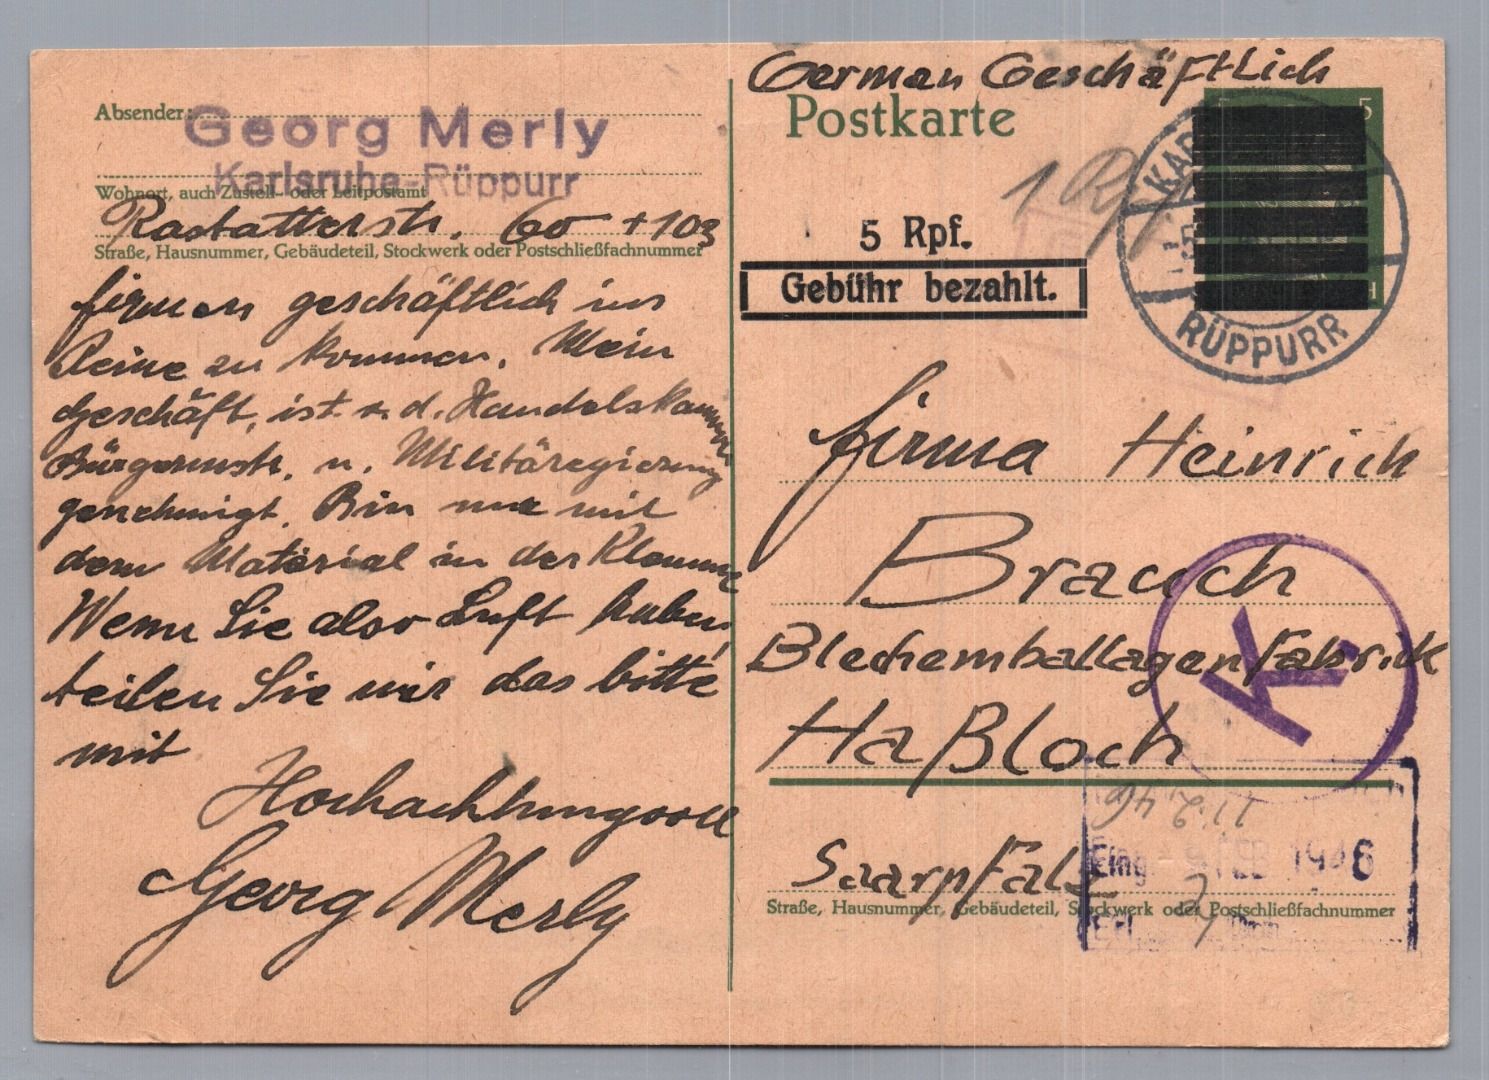 Absender:
Georg Merly
Karlsruhe-Rüppurr
Wohnort, auch Zustell- oder Leitpostamt
Rastatterstr. 60 + 103
Straße, Hausnummer, Gebäudeteil, Stockwerk oder Postschließfachnummer
firmen geschäftlich ins
Reine zu kommen. Mein
Geschäft, ist v. d. Handelskammer
Bürgermstr. u. Militäregierung
genehmigt. Bin nur mit
dem Material in der Klemme
Wenn Sie also Luft haben,
teilen Sie mir das bitte
mit
Hochachtungsvoll
Georg Merly
German Geschäftlich
Postkarte
5
5 Rpf.
Gebühr bezahlt.
RÜPPURR
Firma Heinrich
Brauch
Blechemballagenfabrik
Haßloch
K.
11.2.46
Saarpfalz
Eing. - 9. FEB 1946
Straße, Hausnummer, Gebäudeteil, Stockwerk oder Postschließfachnummer
Erl.